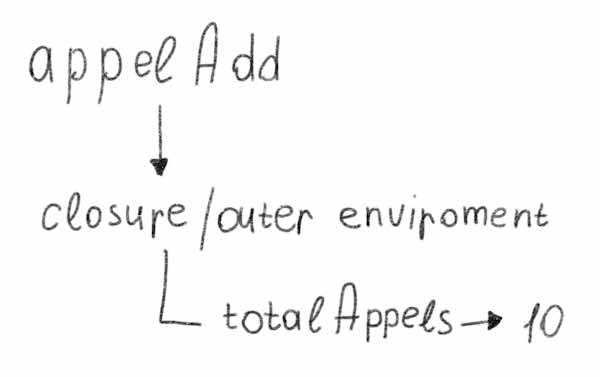 appelAdd
closure/outer enviroment
totalAppels → 10